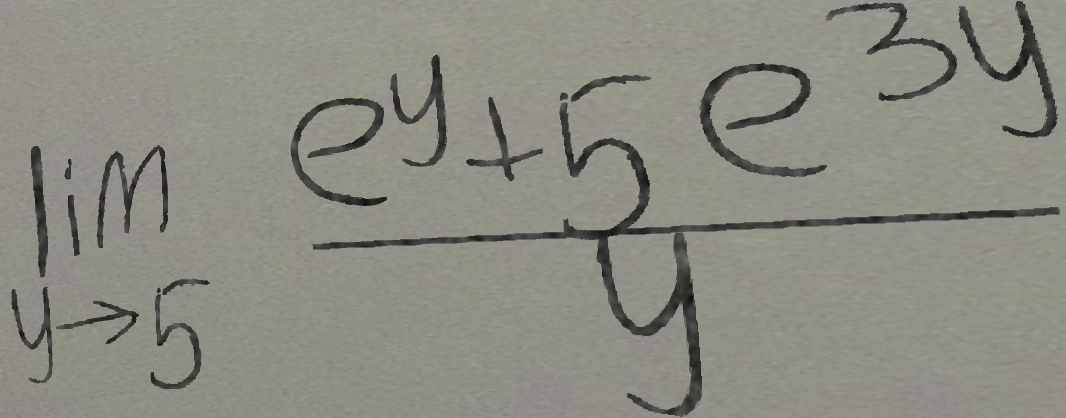 \lim_{y \to 5} \frac{e^{y}+5e^{3y}}{y}